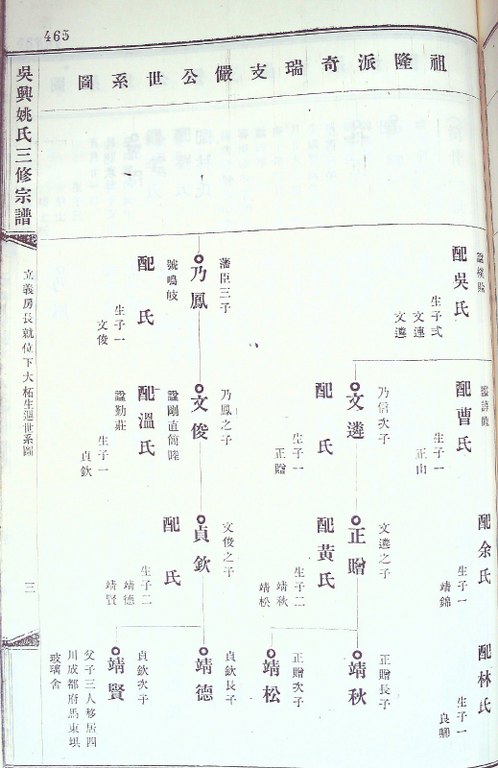 465
祖隆派奇瑞支儼公世系圖
吳興姚氏三修宗譜
立義房長就位下大柘生遜世系圖
三
配吳氏
生子弍
文連
文遴
乃鳳
藩臣三子
號鳴岐
配 氏
生子一
文俊
配曹氏
生子一
正山
文遴
乃信次子
配 氏
生子一
正贈
文俊
乃鳳之子
謚剛直簡睦
配溫氏
謚勤莊
生子一
貞欽
配余氏
生子一
靖錦
正贈
文遴之子
配黃氏
生子二
靖秋
靖松
貞欽
文俊之子
配 氏
生子二
靖德
靖賢
配林氏
生子一
靖秋
正贈長子
靖松
正贈次子
靖德
貞欽長子
靖賢
貞欽次子
父子三人移居四
川成都府馬東垻
玻璃舍